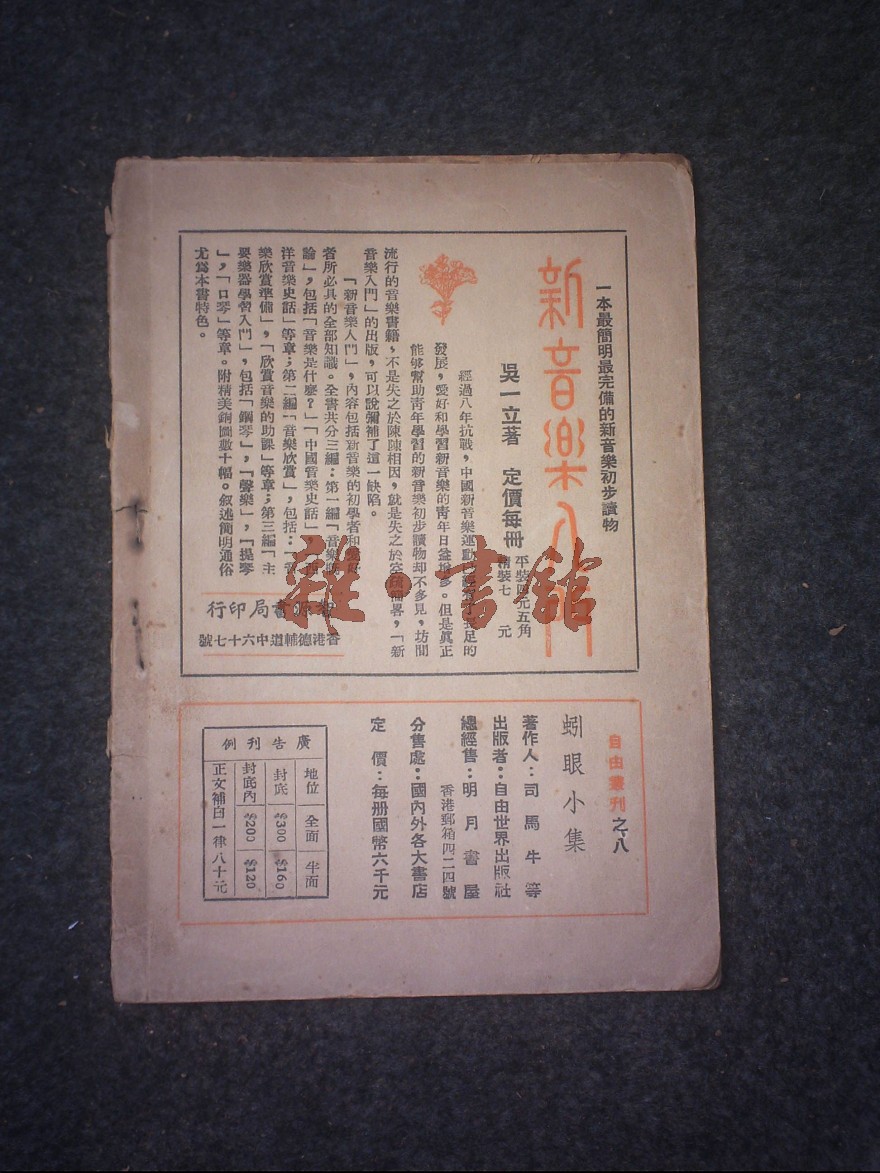 一本最簡明最完備的新音樂初步讀物
新音樂入門
吳一立著 定價每冊
平裝四元五角
精裝七 元
經過八年抗戰,中國新音樂運動
足的
發展,愛好和學習新音樂的靑年日益增多。但是眞正
能够幫助靑年學習的新音樂初步讀物却不多見,坊間
流行的音樂書籍,不是失之於陳陳相因,就是失之於
簡畧,「新
音樂入門」的出版,可以說彌補了這一缺陷。
「新音樂入門」,內容包括新音樂的初學者和愛好
者所必具的全部知識。全書共分三編:第一編「音樂
論」,包括「音樂是什麼?」「中國音樂史話」,「西
洋音樂史話」等章;第二編「音樂欣賞」,包括:「音
樂欣賞準備」,「欣賞音樂的助課」等章;第三編「主
要樂器學習入門」,包括「鋼琴」,「聲樂」,「提琴
」,「口琴」等章。附精美銅圖數十幅。叙述簡明通俗
尤爲本書特色。
書局印行
香港德輔道中六十七號
雜·書館
自由叢刊之八
蚓眼小集
著作人:司馬牛等
出版者:自由世界出版社
總經售:明月書屋
香港郵箱四二四號
分售處:國內外各大書店
定 價:每册國幣六千元
廣告刊例
地位 全面 半面
封底 $300 $160
封底內 $200 $120
正文補白一律八十元